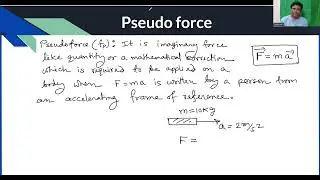 Pseudo force
Pseudoforce (fp): It is imaginary force
like quantity or a mathematical correction
which is required to be applied on a
body when F=ma is written by a person from
an accelerating frame of reference.
F⃗ = ma⃗
m=10Kg
a = 2m/s2
F =